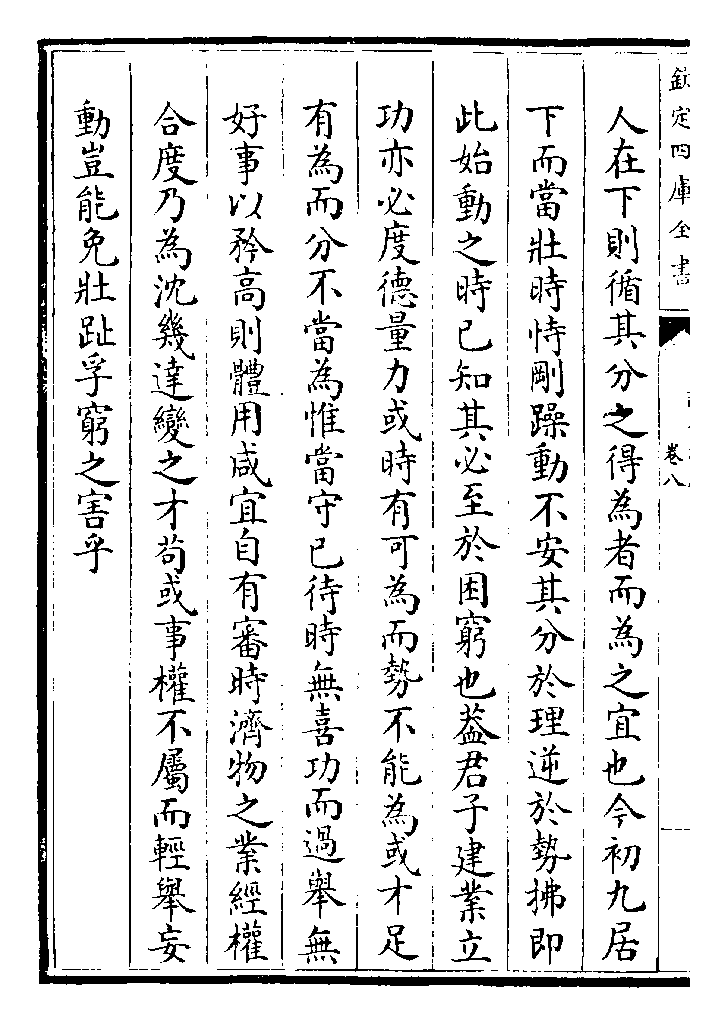 欽定四庫全書
卷八
人在下則循其分之得為者而為之宜也今初九居
下而當壯時恃剛躁動不安其分於理逆於勢拂即
此始動之時已知其必至於困窮也葢君子建業立
功亦必度德量力或時有可為而勢不能為或才足
有為而分不當為惟當守已待時無喜功而過舉無
好事以矜高則體用咸宜自有審時濟物之業經權
合度乃為沈幾達變之才茍或事權不屬而輕舉妄
動豈能免壯趾孚窮之害乎